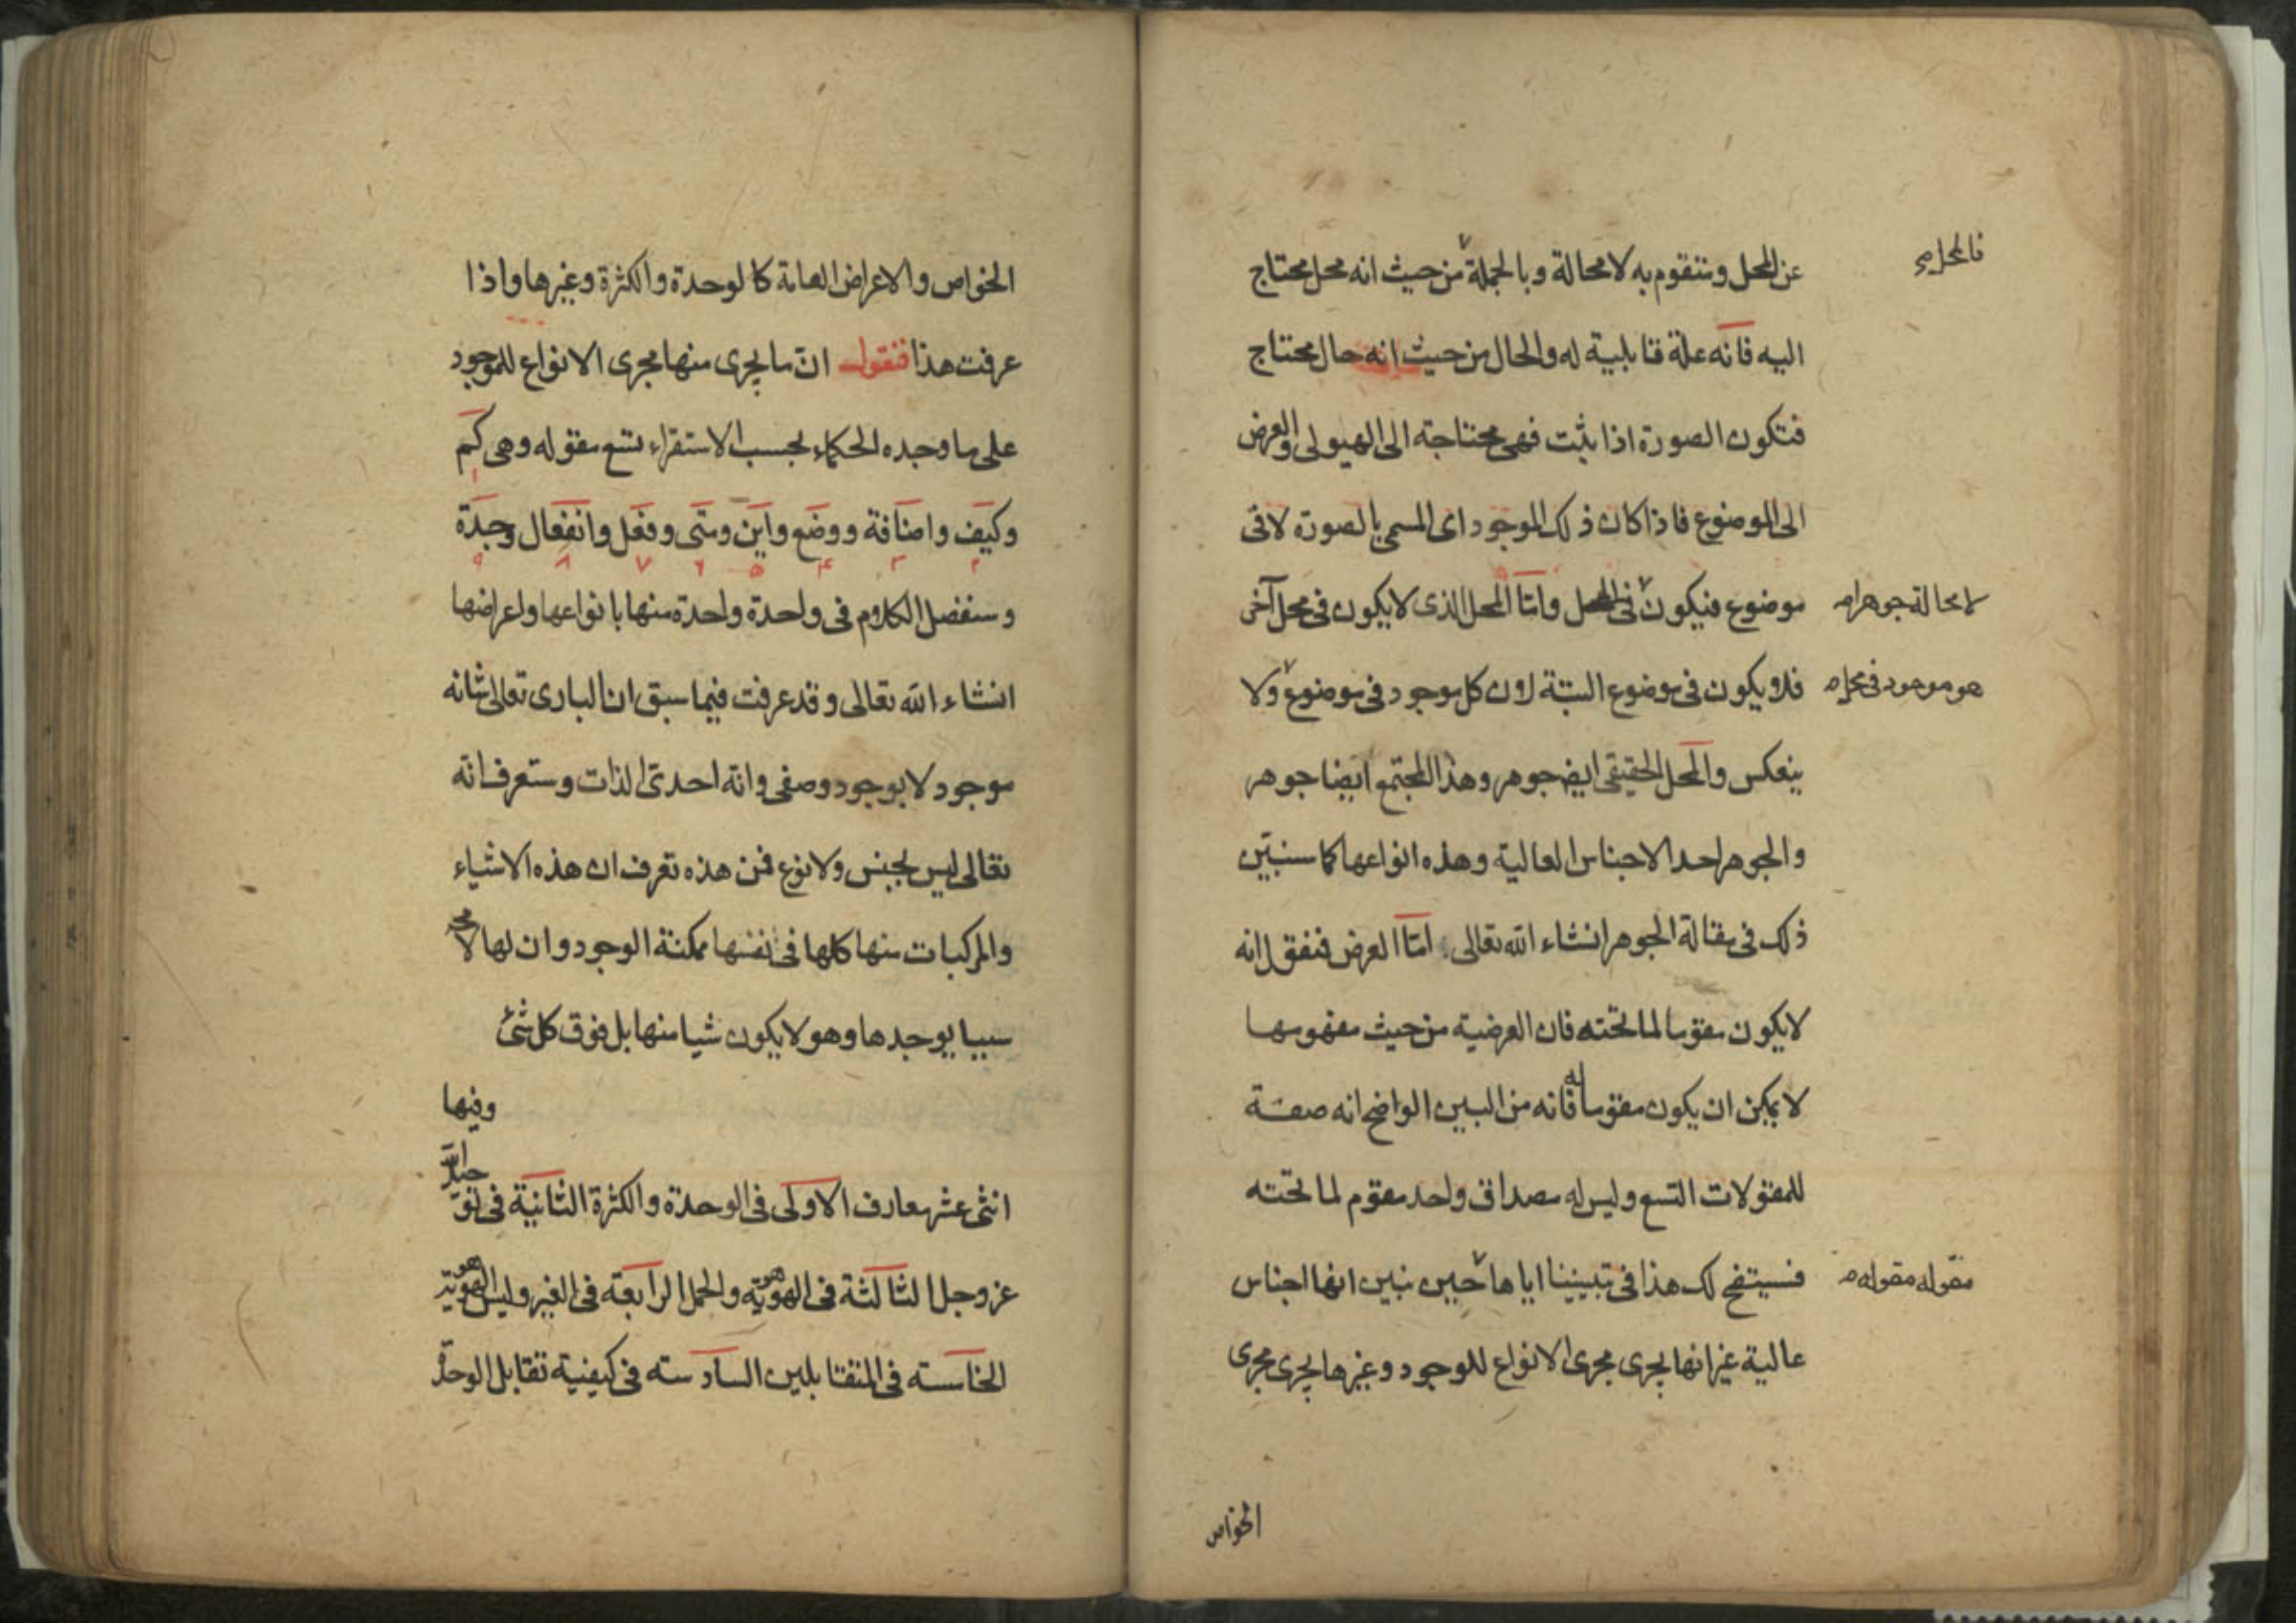 عن المحل وستقوم به لا محالة وبالجملة من حيث انه محل محتاج
فالمحل صح
اليه فانه علة قابلية له والحال من حيث انه حال محتاج
فتكون الصورة اذا بثت فهى محتاجة الى الهيولى والعرض
الى الموضوع فاذا كان ذلك الموجود اى المسمى بالصورة لا فى
موضوع فيكون فى المحل واما المحل الذى لا يكون فى محل آخر
لا محالة جوهرا صح
فلا يكون فى موضوع البتة لان كل موجود فى موضوع ولا
هو موجود فى محل صح
ينعكس والمحل الحقيقى ايض جوهر وهذا المجتمع ايضا جوهر
والجوهر احد الاجناس العالية وهذه انواعها كما سنبين
ذلك فى مقالة الجوهر انشاء الله تعالى اما العرض فنقول انه
لا يكون مقوما لما تحته فان العرضية من حيث مفهومها
لا يمكن ان يكون مقوما له فانه من البين الواضح انه صفة
للمقولات التسع وليس له مصداق واحد مقوم لما تحته
فسيتضح لك هذا فى تبييننا اياها حين نبين انها اجناس
مقوله مقوله صح
عالية غير انها يجرى مجرى الانواع للوجود وغيرها يجرى مجرى
الخواص
الخواص والاعراض العامة كالوحدة والكثرة وغيرها واذا
عرفت هذا فنقول ان ما يجرى منها مجرى الانواع للموجود
على ما وجده الحكماء بحسب الاستقراء تسع مقوله وهى كم
١
وكيف واضافة ووضع واين ومتى وفعل وانفعال وجدة
٢ ٣ ۴ ۵ ۶ ٧ ٨ ٩
وسنفصل الكلام فى واحدة واحدة منها بانواعها واعراضها
انشاء الله تعالى وقد عرفت فيما سبق ان البارى تعالى شانه
موجود لا بوجود وصفى وانه احدى الذات وستعرف انه
تعالى ليس بجنس ولا نوع فمن هذه تعرف ان هذه الاشياء
والمركبات منها كلها فى نفسها ممكنة الوجود وان لها لا مح
سببا يوجدها وهو لا يكون شيا منها بل فوق كل شئ
وفيها
اثنى عشر معارف الاولى فى الوحدة والكثرة الثانية فى
عز وجل الثالثة فى الهوهوية والحمل الرابعة فى الغير وليس الهوهوية
الخامسة فى المتقابلين السادسة فى كيفية تقابل الوحدة